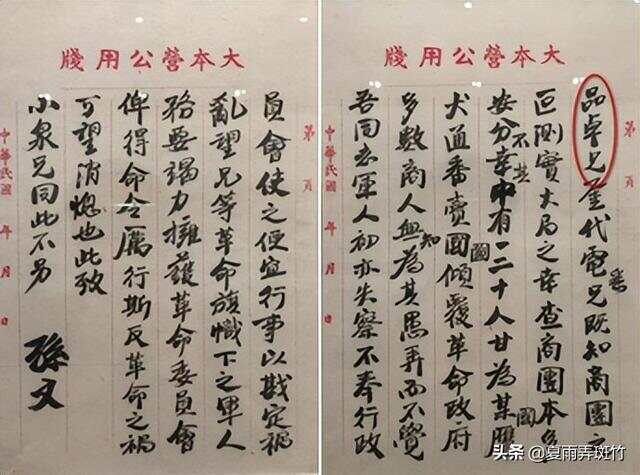 大本營公用牋
第 頁
品卓兄鉴代電悉兄既知商團之
叵測實大局之幸查商團本多
安分不幸其中有一二十人甘為某國鷹
犬通番賣國圖傾覆革命政府
多數商人無知為其愚弄而不覺
吾同志軍人初亦失察不奉行政
中華民國 年 月 日
大本營公用牋
第 頁
員會使之便宜行事以戡定禍
亂望兄等革命旗幟下之軍人
務要竭力擁護革命委員會
俾得命令厲行斯反革命之禍
可望消熄也此致
小泉兄同此不另
孫文
中華民國 年 月 日
头条 @夏雨弄斑竹